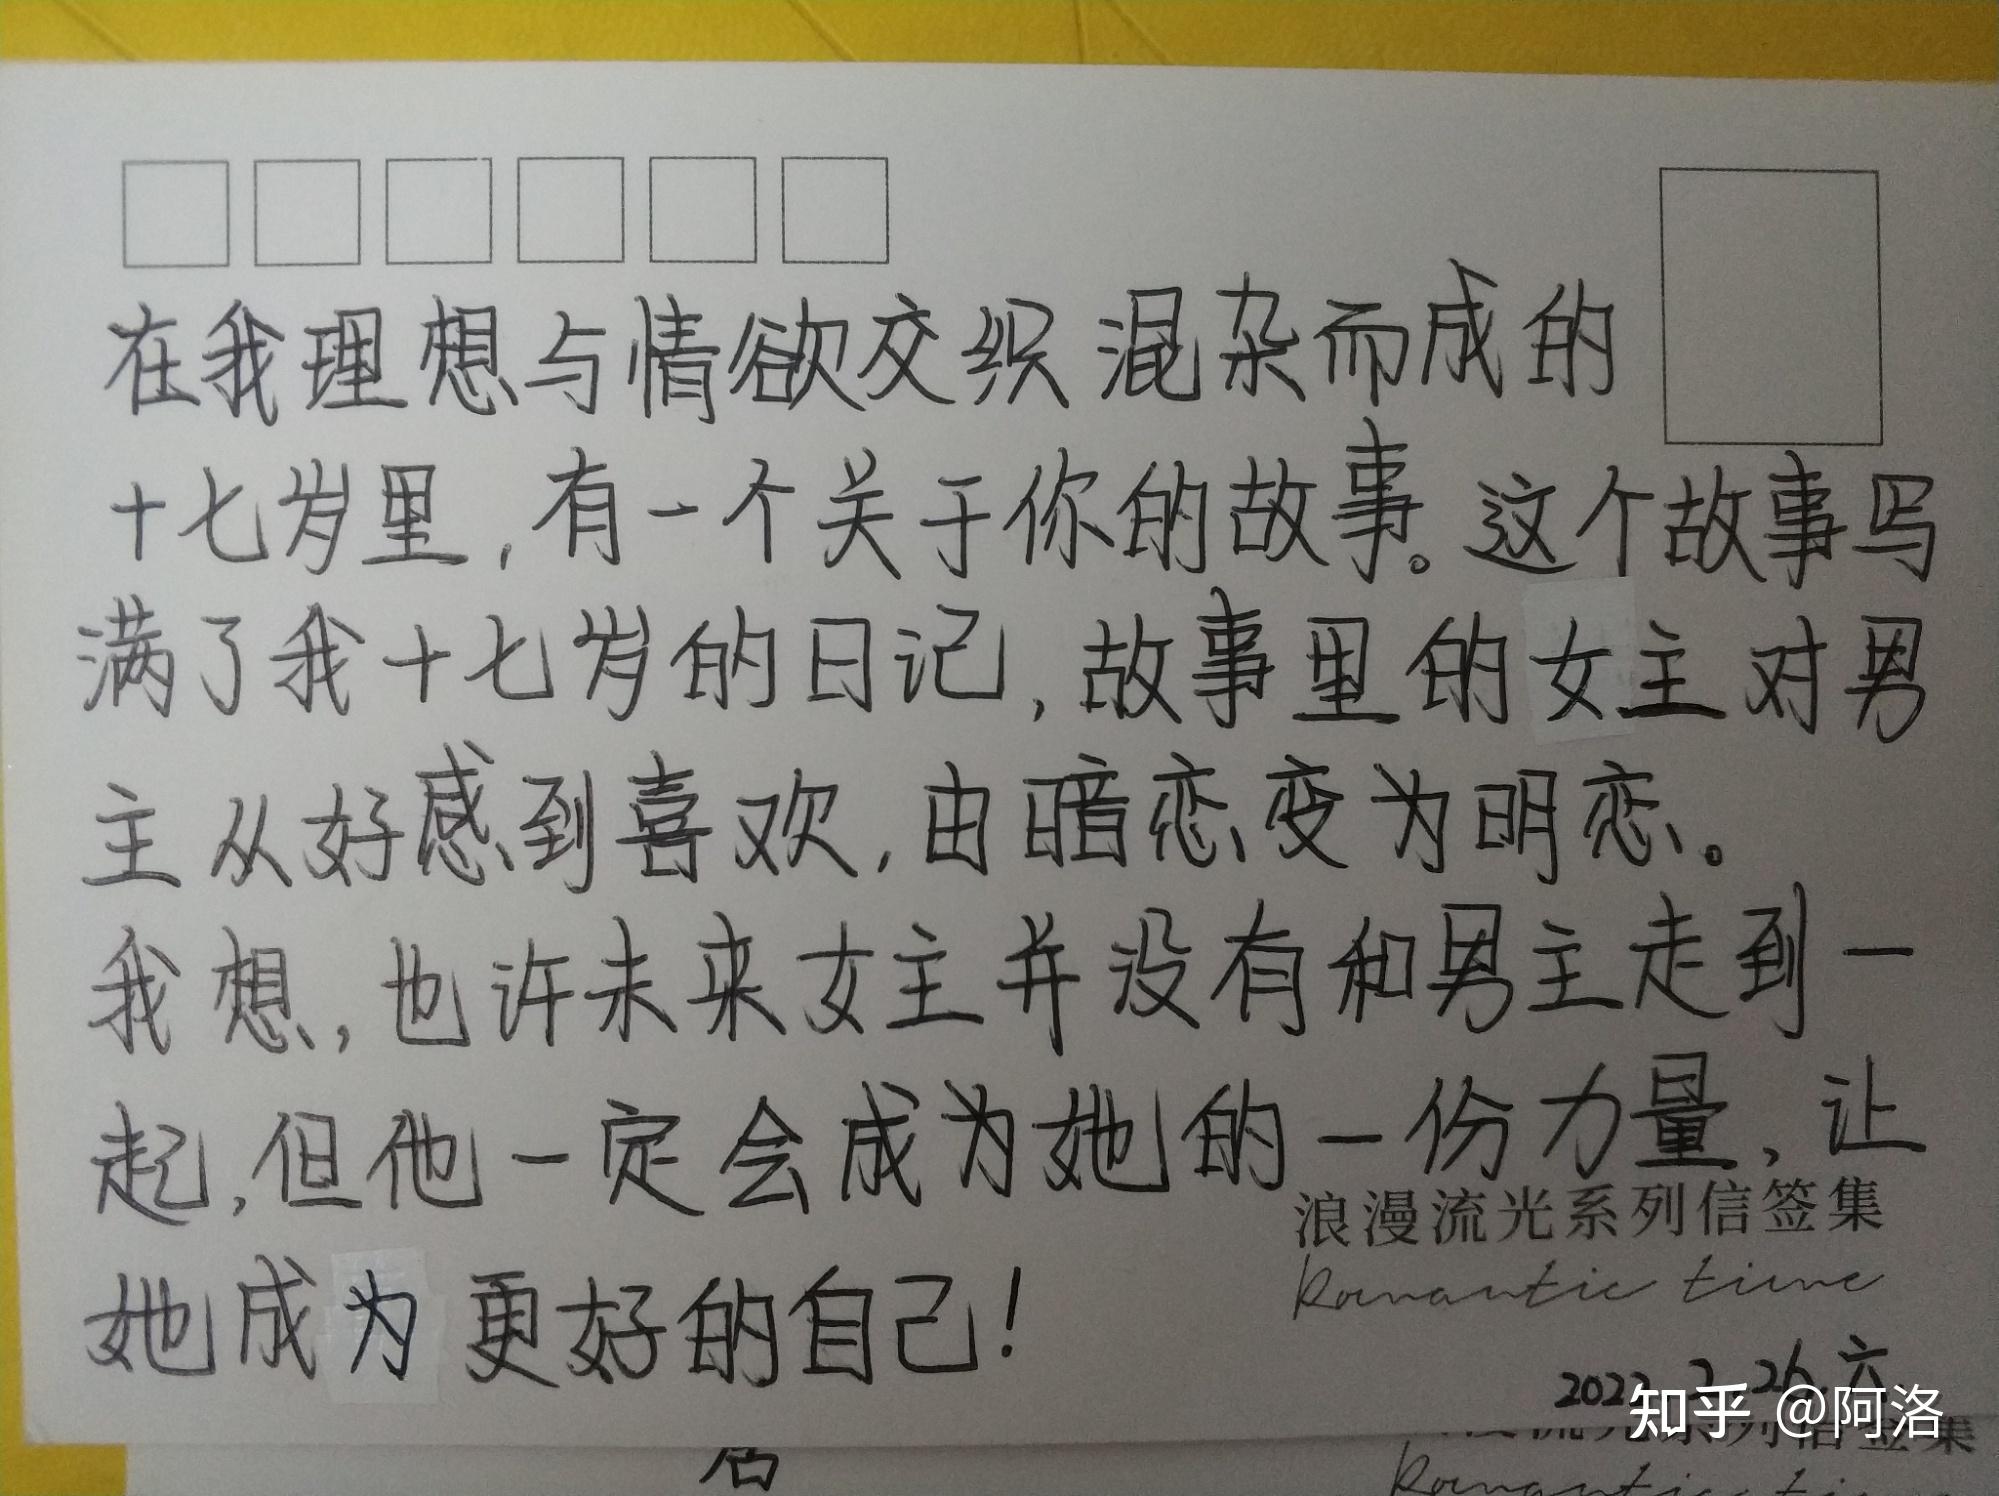 在我理想与情欲交织混杂而成的
十七岁里,有一个关于你的故事。这个故事写
满了我十七岁的日记,故事里的女主对男
主从好感到喜欢,由暗恋变为明恋。
我想,也许未来女主并没有和男主走到一
起,但他一定会成为她的一份力量,让
她成为更好的自己!
浪漫流光系列信签集
Romantic time
2022.2.26.六
知乎 @阿洛
Romantic